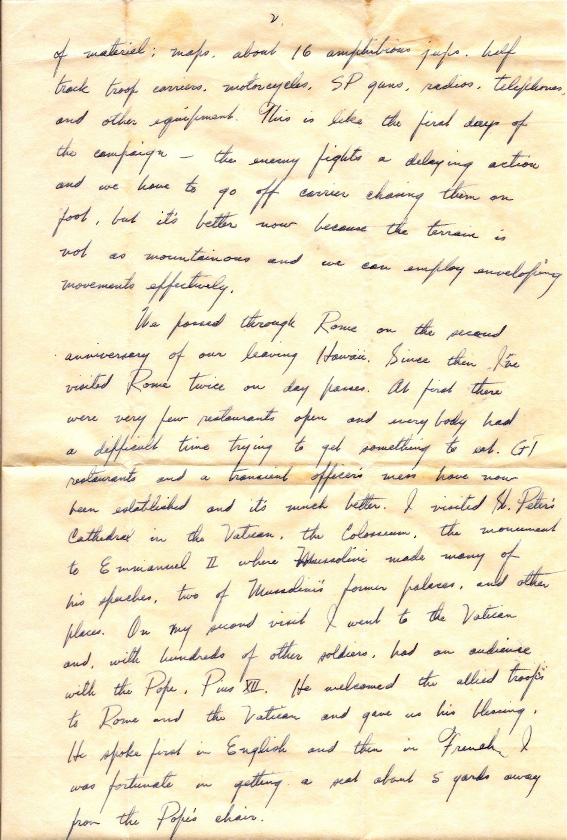 2.
of materiel; maps, about 16 amphibious jeeps, half
track troop carriers, motorcycles, SP guns, radios, telephones,
and other equipment. This is like the first days of
the campaign — the enemy fights a delaying action
and we have to go off carrier chasing them on
foot, but it's better now because the terrain is
not as mountainous and we can employ enveloping
movements effectively.
We passed through Rome on the second
anniversary of our leaving Hawaii. Since then I've
visited Rome twice on day passes. At first there
were very few restaurants open and everybody had
a difficult time trying to get something to eat. GI
restaurants and a transient officer's mess have now
been established and it's much better. I visited St. Peter's
Cathedral in the Vatican, the Colosseum, the monument
to Emmanuel II where Mussolini made many of
his speeches, two of Mussolini's former palaces, and other
places. On my second visit I went to the Vatican
and, with hundreds of other soldiers, had an audience
with the Pope, Pius XII. He welcomed the allied troops
to Rome and the Vatican and gave us his blessing.
He spoke first in English and then in French. I
was fortunate in getting a seat about 5 yards away
from the Pope's chair.